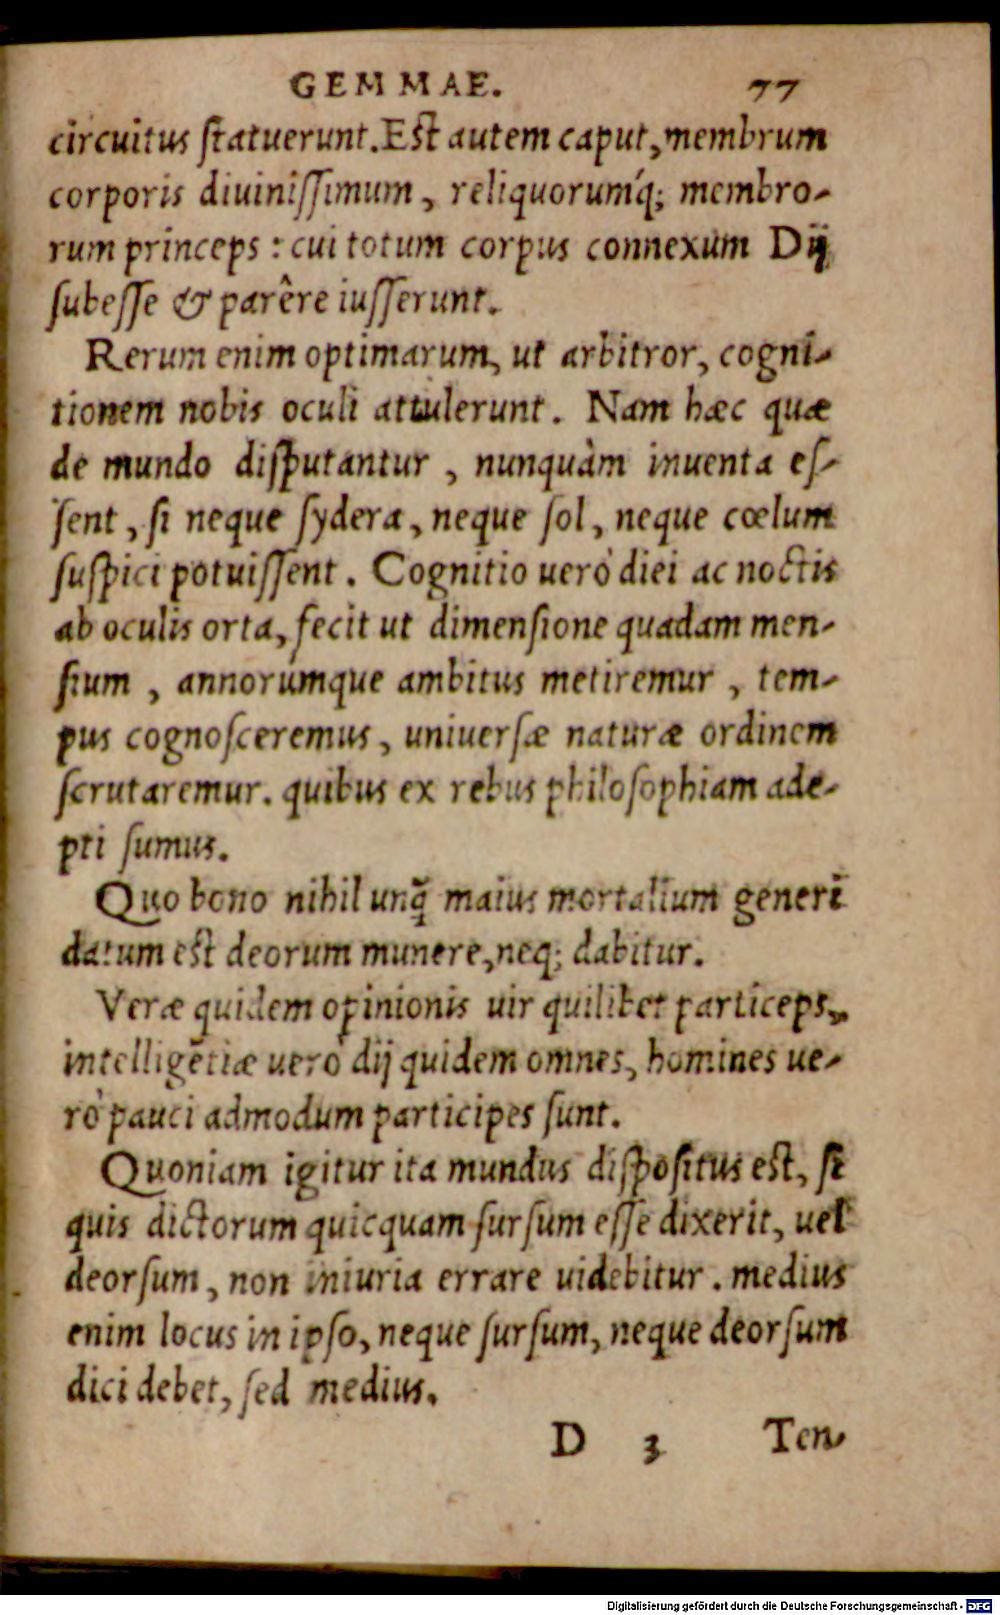 GEMMAE. 77
circuitus ſtatuerunt. Eſt autem caput, membrum
corporis diuiniſſimum, reliquorumq́; membro-
rum princeps: cui totum corpus connexum Dij
ſubeſſe & parêre iuſſerunt.
Rerum enim optimarum, ut arbitror, cogni-
tionem nobis oculi attulerunt. Nam hæc quæ
de mundo diſputantur, nunquàm inuenta eſ-
ſent, ſi neque ſydera, neque ſol, neque cœlum
ſuſpici potuiſſent. Cognitio uerò diei ac noctis
ab oculis orta, fecit ut dimenſione quadam men-
ſium, annorúmque ambitus metiremur, tem-
pus cognoſceremus, uniuerſæ naturæ ordinem
ſcrutaremur. quibus ex rebus philoſophiam ade-
pti ſumus.
Quo bono nihil unq̃ maius mortalium generi
datum eſt deorum munere, neq; dabitur.
Veræ quidem opinionis uir quilibet particeps,
intelligẽtiæ uerò dij quidem omnes, homines ue-
rò pauci admodum participes ſunt.
Quoniam igitur ita mundus diſpoſitus eſt, ſi
quis dictorum quicquam ſurſum eſſe dixerit, uel
deorſum, non iniuria errare uidebitur. medius
enim locus in ipſo, neque ſurſum, neque deorſum
dici debet, ſed medius.
D 3 Ten-
Digitalisierung gefördert durch die Deutsche Forschungsgemeinschaft - DFG